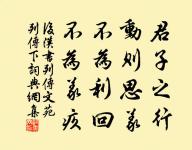 君子之行
動則思義
不為利回
不為義疚
後漢書列傳文苑
列傳下詞典網集